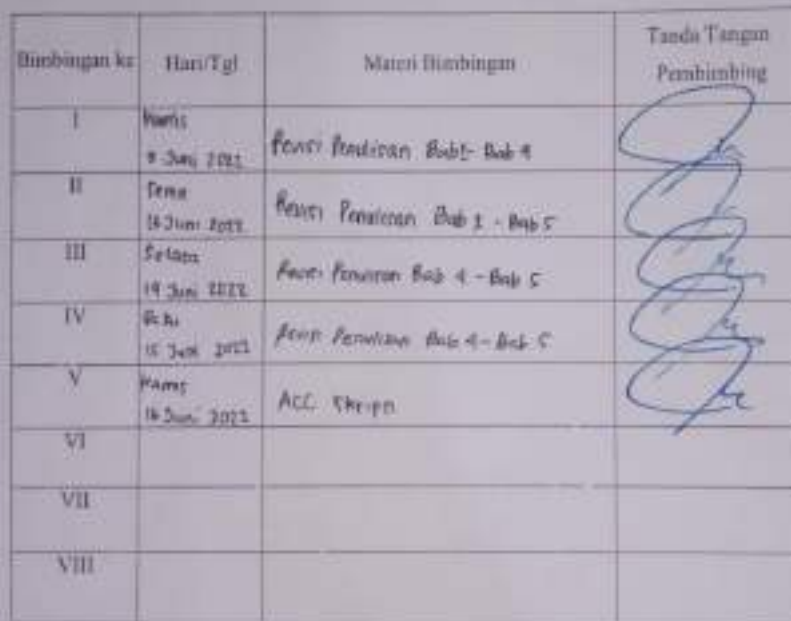 Bimbingan ke Hari/Tgl Materi Bimbingan Tanda Tangan
Pembimbing
I Kamis
Juni 2022 Revisi Penulisan Bab 1 - Bab 4
II
Juni 2022 Revisi Penulisan Bab 1 - Bab 5
III Selasa
14 Juni 2022 Revisi Penulisan Bab 4 - Bab 5
IV Rabu
15 Juni 2022 Revisi Penulisan Bab 4 - Bab 5
V Kamis
16 Juni 2022 ACC Skripsi
VI
VII
VIII